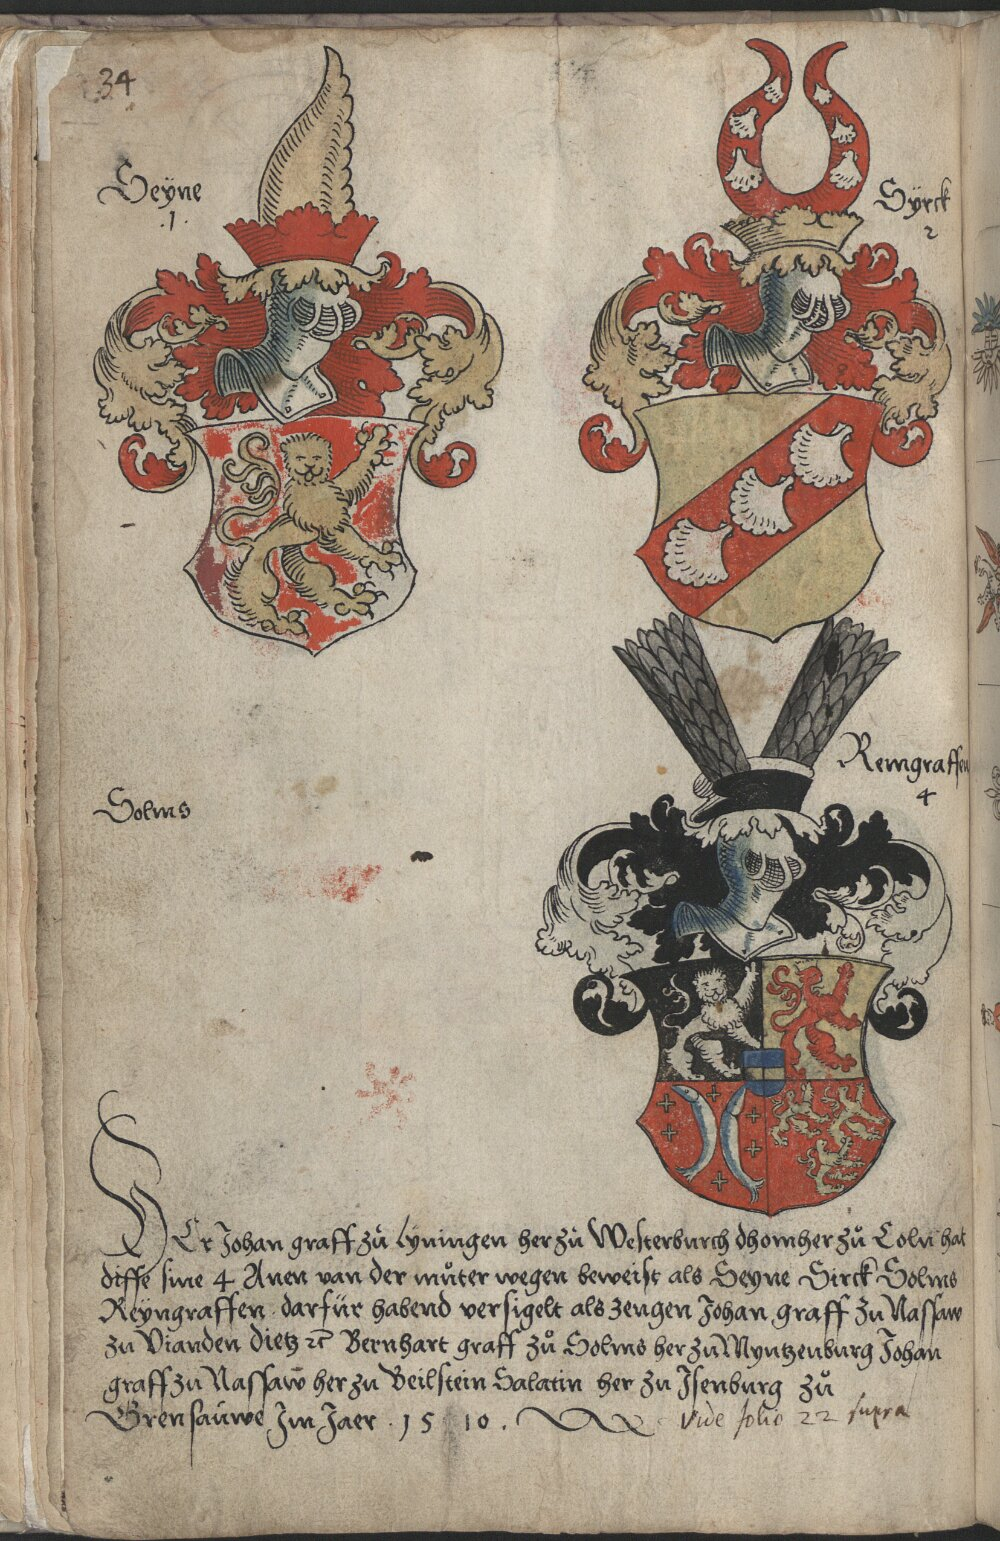 34
Seÿne
.1.
Sÿrck
2
Solms
Remgraffen
4
HEr Johan graff zů Lyningen her zů Westerburch dhomher zů Coln hat
disse sine 4 Anen van der můter wegen beweist als Seyne Sirck Solms
Reÿngraffen darfür habend versigelt als zeugen Johan graff zu Nassaw
zu Vianden dietz ꝛc Bernhart graff zů Solms her zu Myntzenburg Johan
graff zu Nassaw her zu Beilstein Salatin her zu Jsenburg zů
Grensaůwe Jm Jaer . 1510 .
vide folio 22 supra